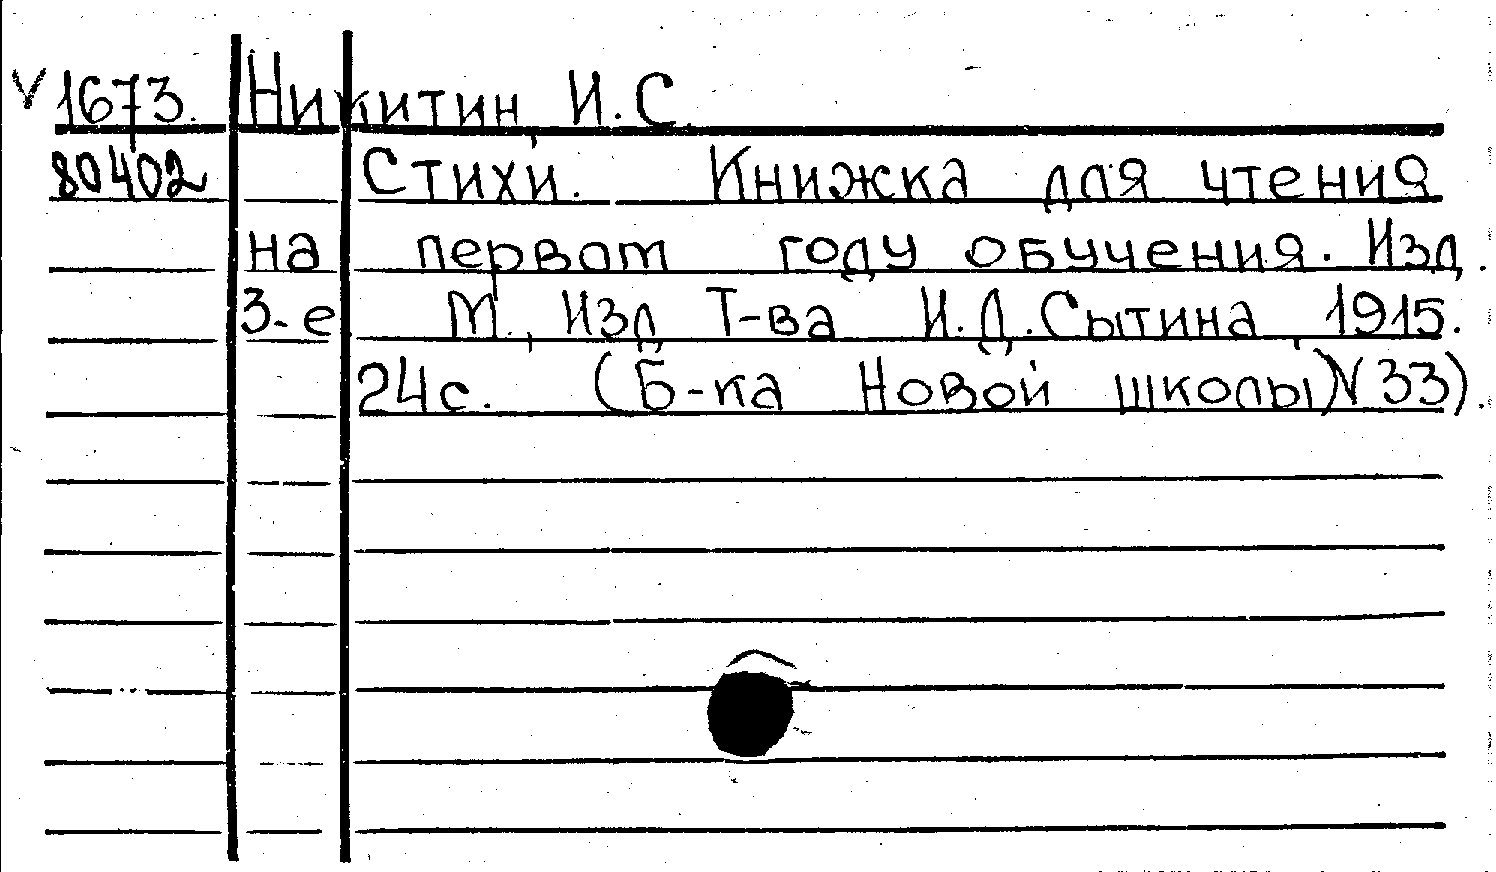 V 1673. Никитин, И.С.
80402 Стихи. Книжка для чтения
на первом году обучения. Изд.
3-е М., Изд Т-ва И.Д.Сытина, 1915.
24с. (Б-ка Новой школы) № 33).